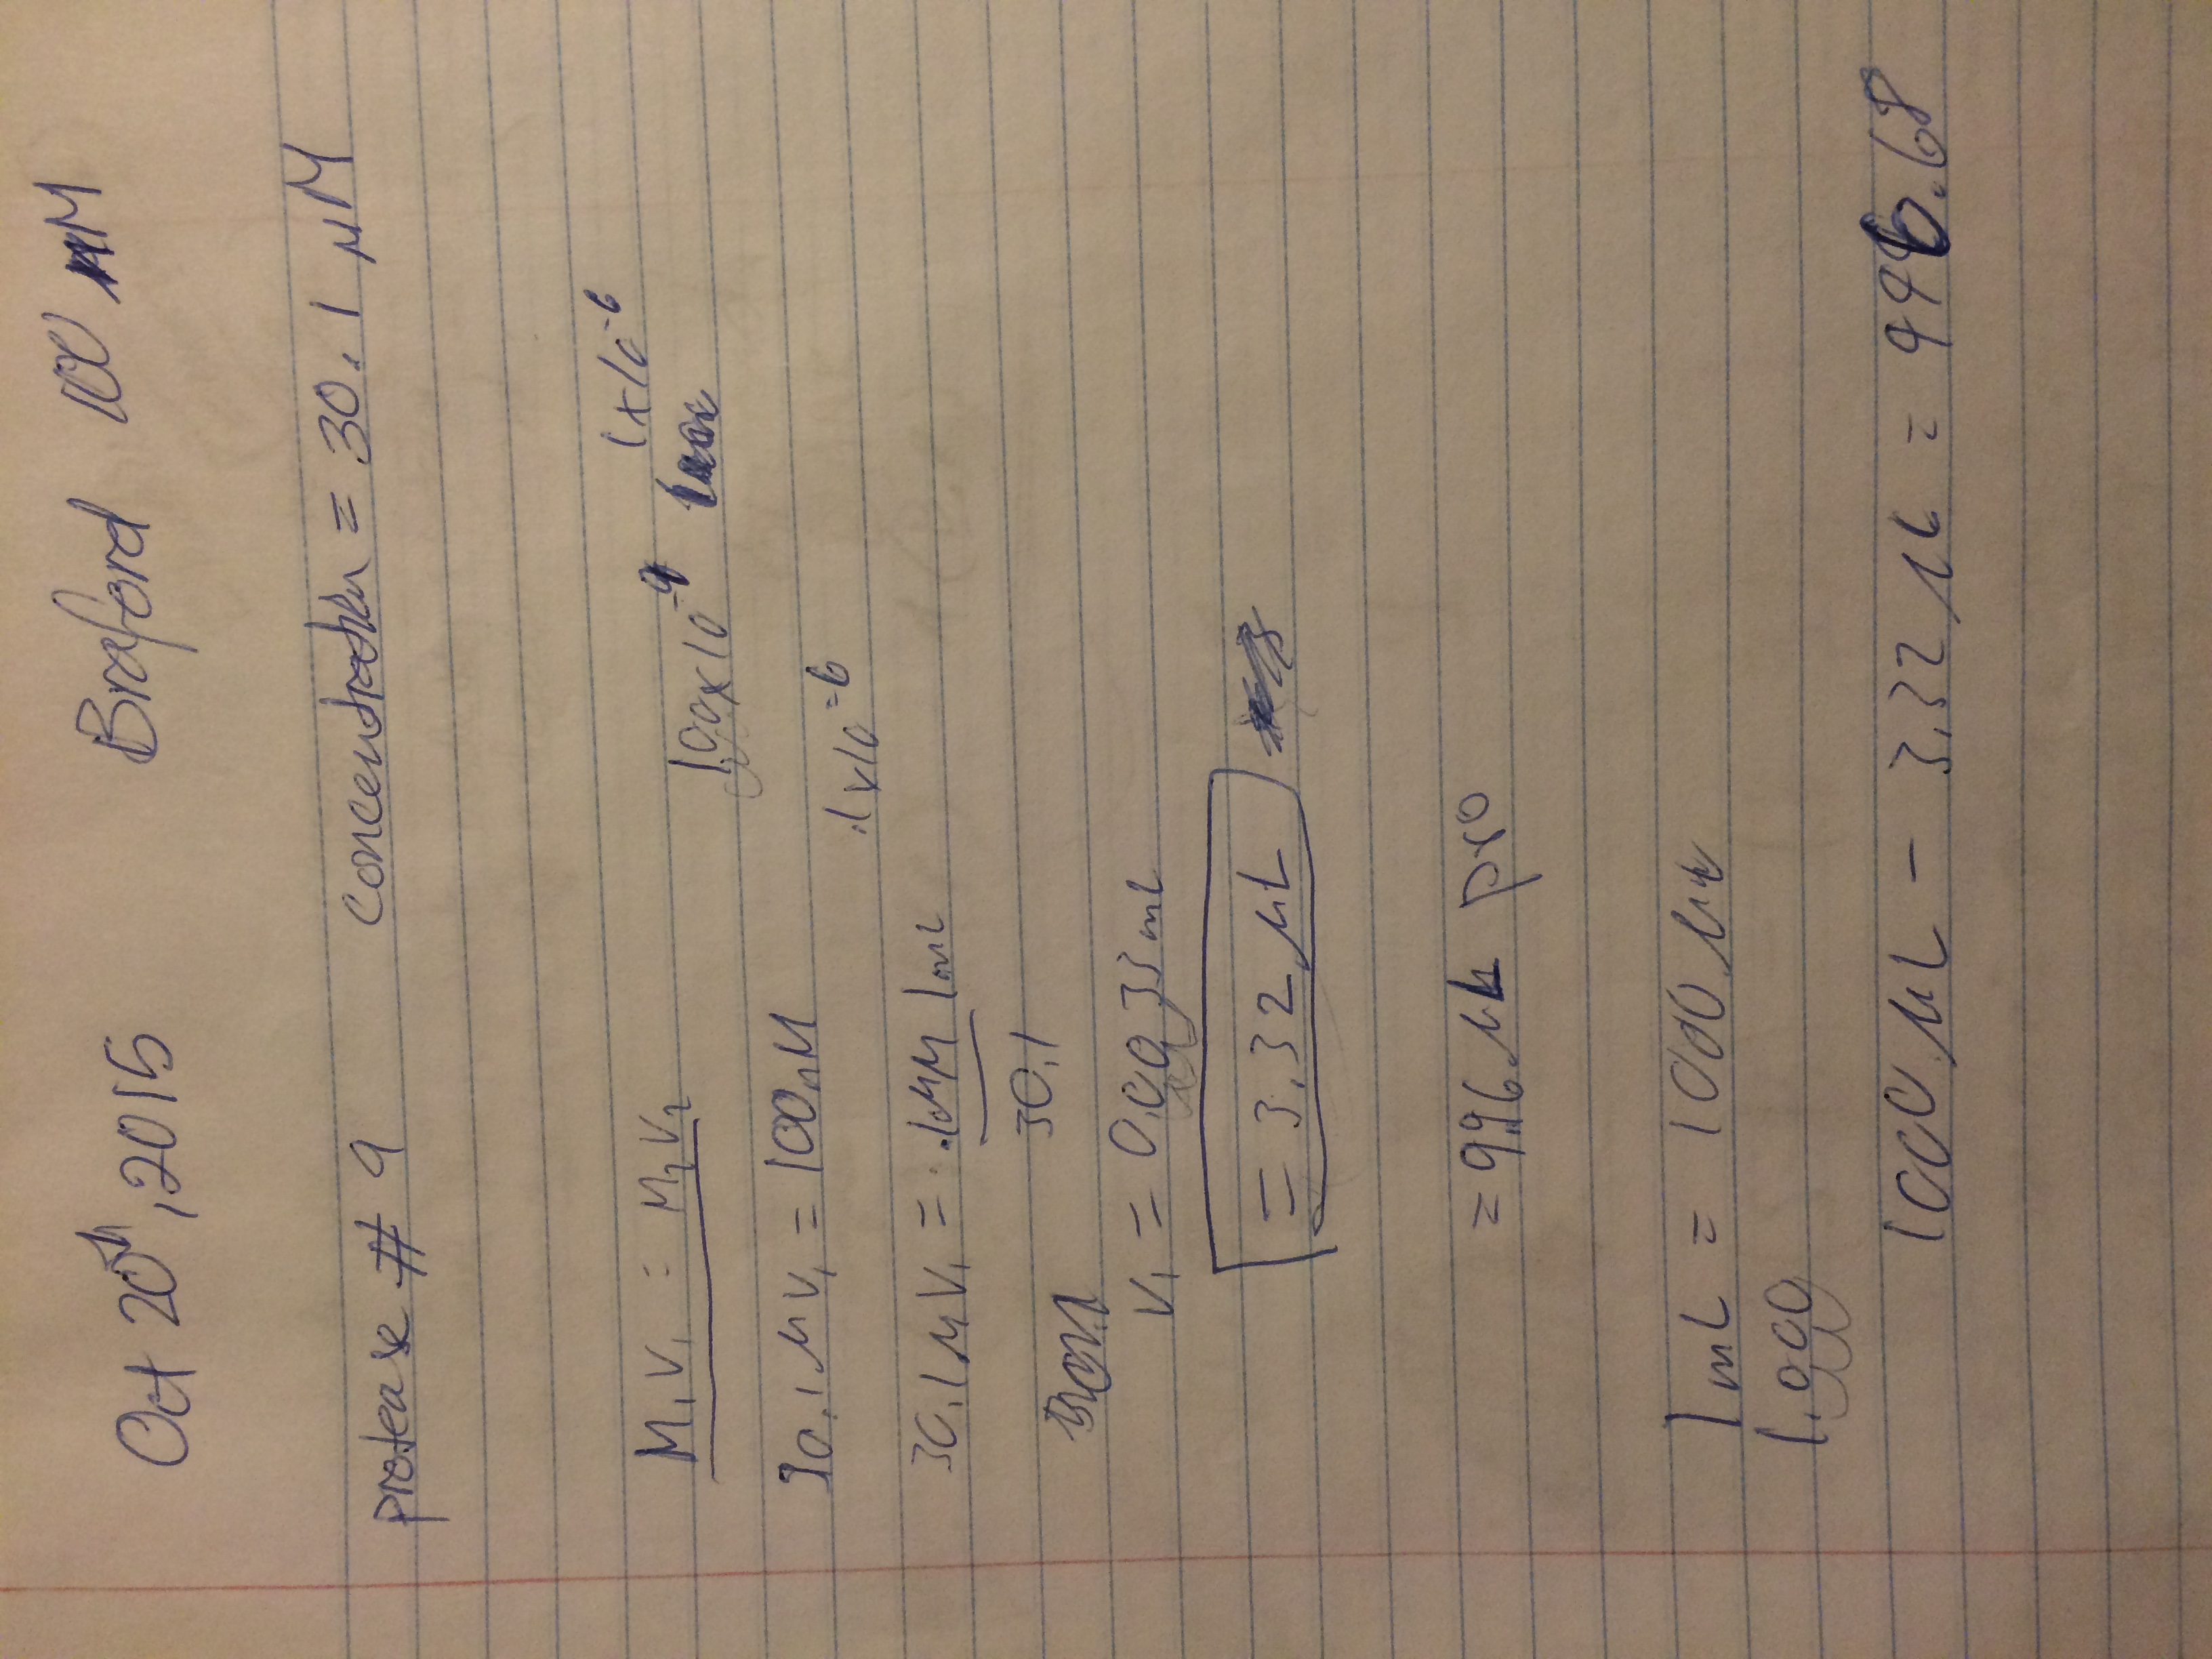 Oct 20th, 2015 Braford 100 nM
protease # 9 concentration = 30.1 μM
M1V1 = M2V2
1x10-6
100x10-9
30.1 μ V1 = 100nM
.1x10-6
30.1 μM V1 = .1μM 1mL
30.1
V1 = 0.0033mL
= 3.32 μL
= 996 μL
1mL = 1000 μL
1,000
1000 μL - 3.32 μL = 996.68